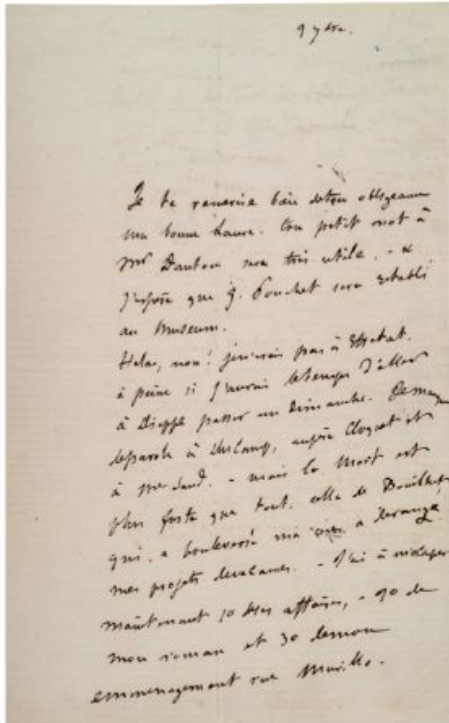 9 7bre.
Je te remercie bien de ton obligeance
ma bonne Laure. ton petit mot à
Mr Danton sera très utile. - &
j'espère que G. Pouchet sera rétabli
au Museum.
Hélas, non! je n'irai pas à Etretat.
à peine si j'aurai le temps d'aller
à Dieppe passer un dimanche. Je manque
de parole à du Camp, auprès Cloquet et
à Me Sand. - mais la Mort est
plus forte que tout. celle de Bouilhet
qui a bouleversé ma vie a dérangé
mes projets de vacances. - J'ai à m'occuper
maintenant 1o de ses affaires, - 2o de
mon roman et 3o de mon
emménagement rue Murillo.